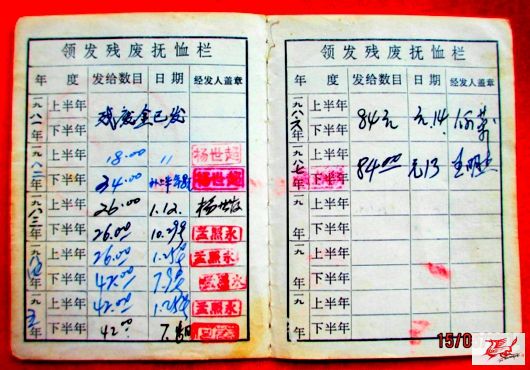 领发残废抚恤栏
年 度 发给数目 日期 经发人盖章
一九八一年 上半年
残废金已发
下半年
一九八二年 上半年 18.00 〃 杨世超
下半年 34.00 杨世超
一九八三年 上半年 26.00 1.12.
下半年 26.00 10.29号 孟照永
一九八四年 上半年 26.00 1.25号 孟照永
下半年 42.00
一九 五年 上半年 42.00 孟照永
下半年 42.00
领发残废抚恤栏
年 度 发给数目 日期 经发人盖章
一九八六年 上半年 84元 元.14
下半年
一九八七年 上半年 84.00 元13
下半年
一九 年 上半年
下半年
一九 年 上半年
下半年
一九 年 上半年
下半年
15/0